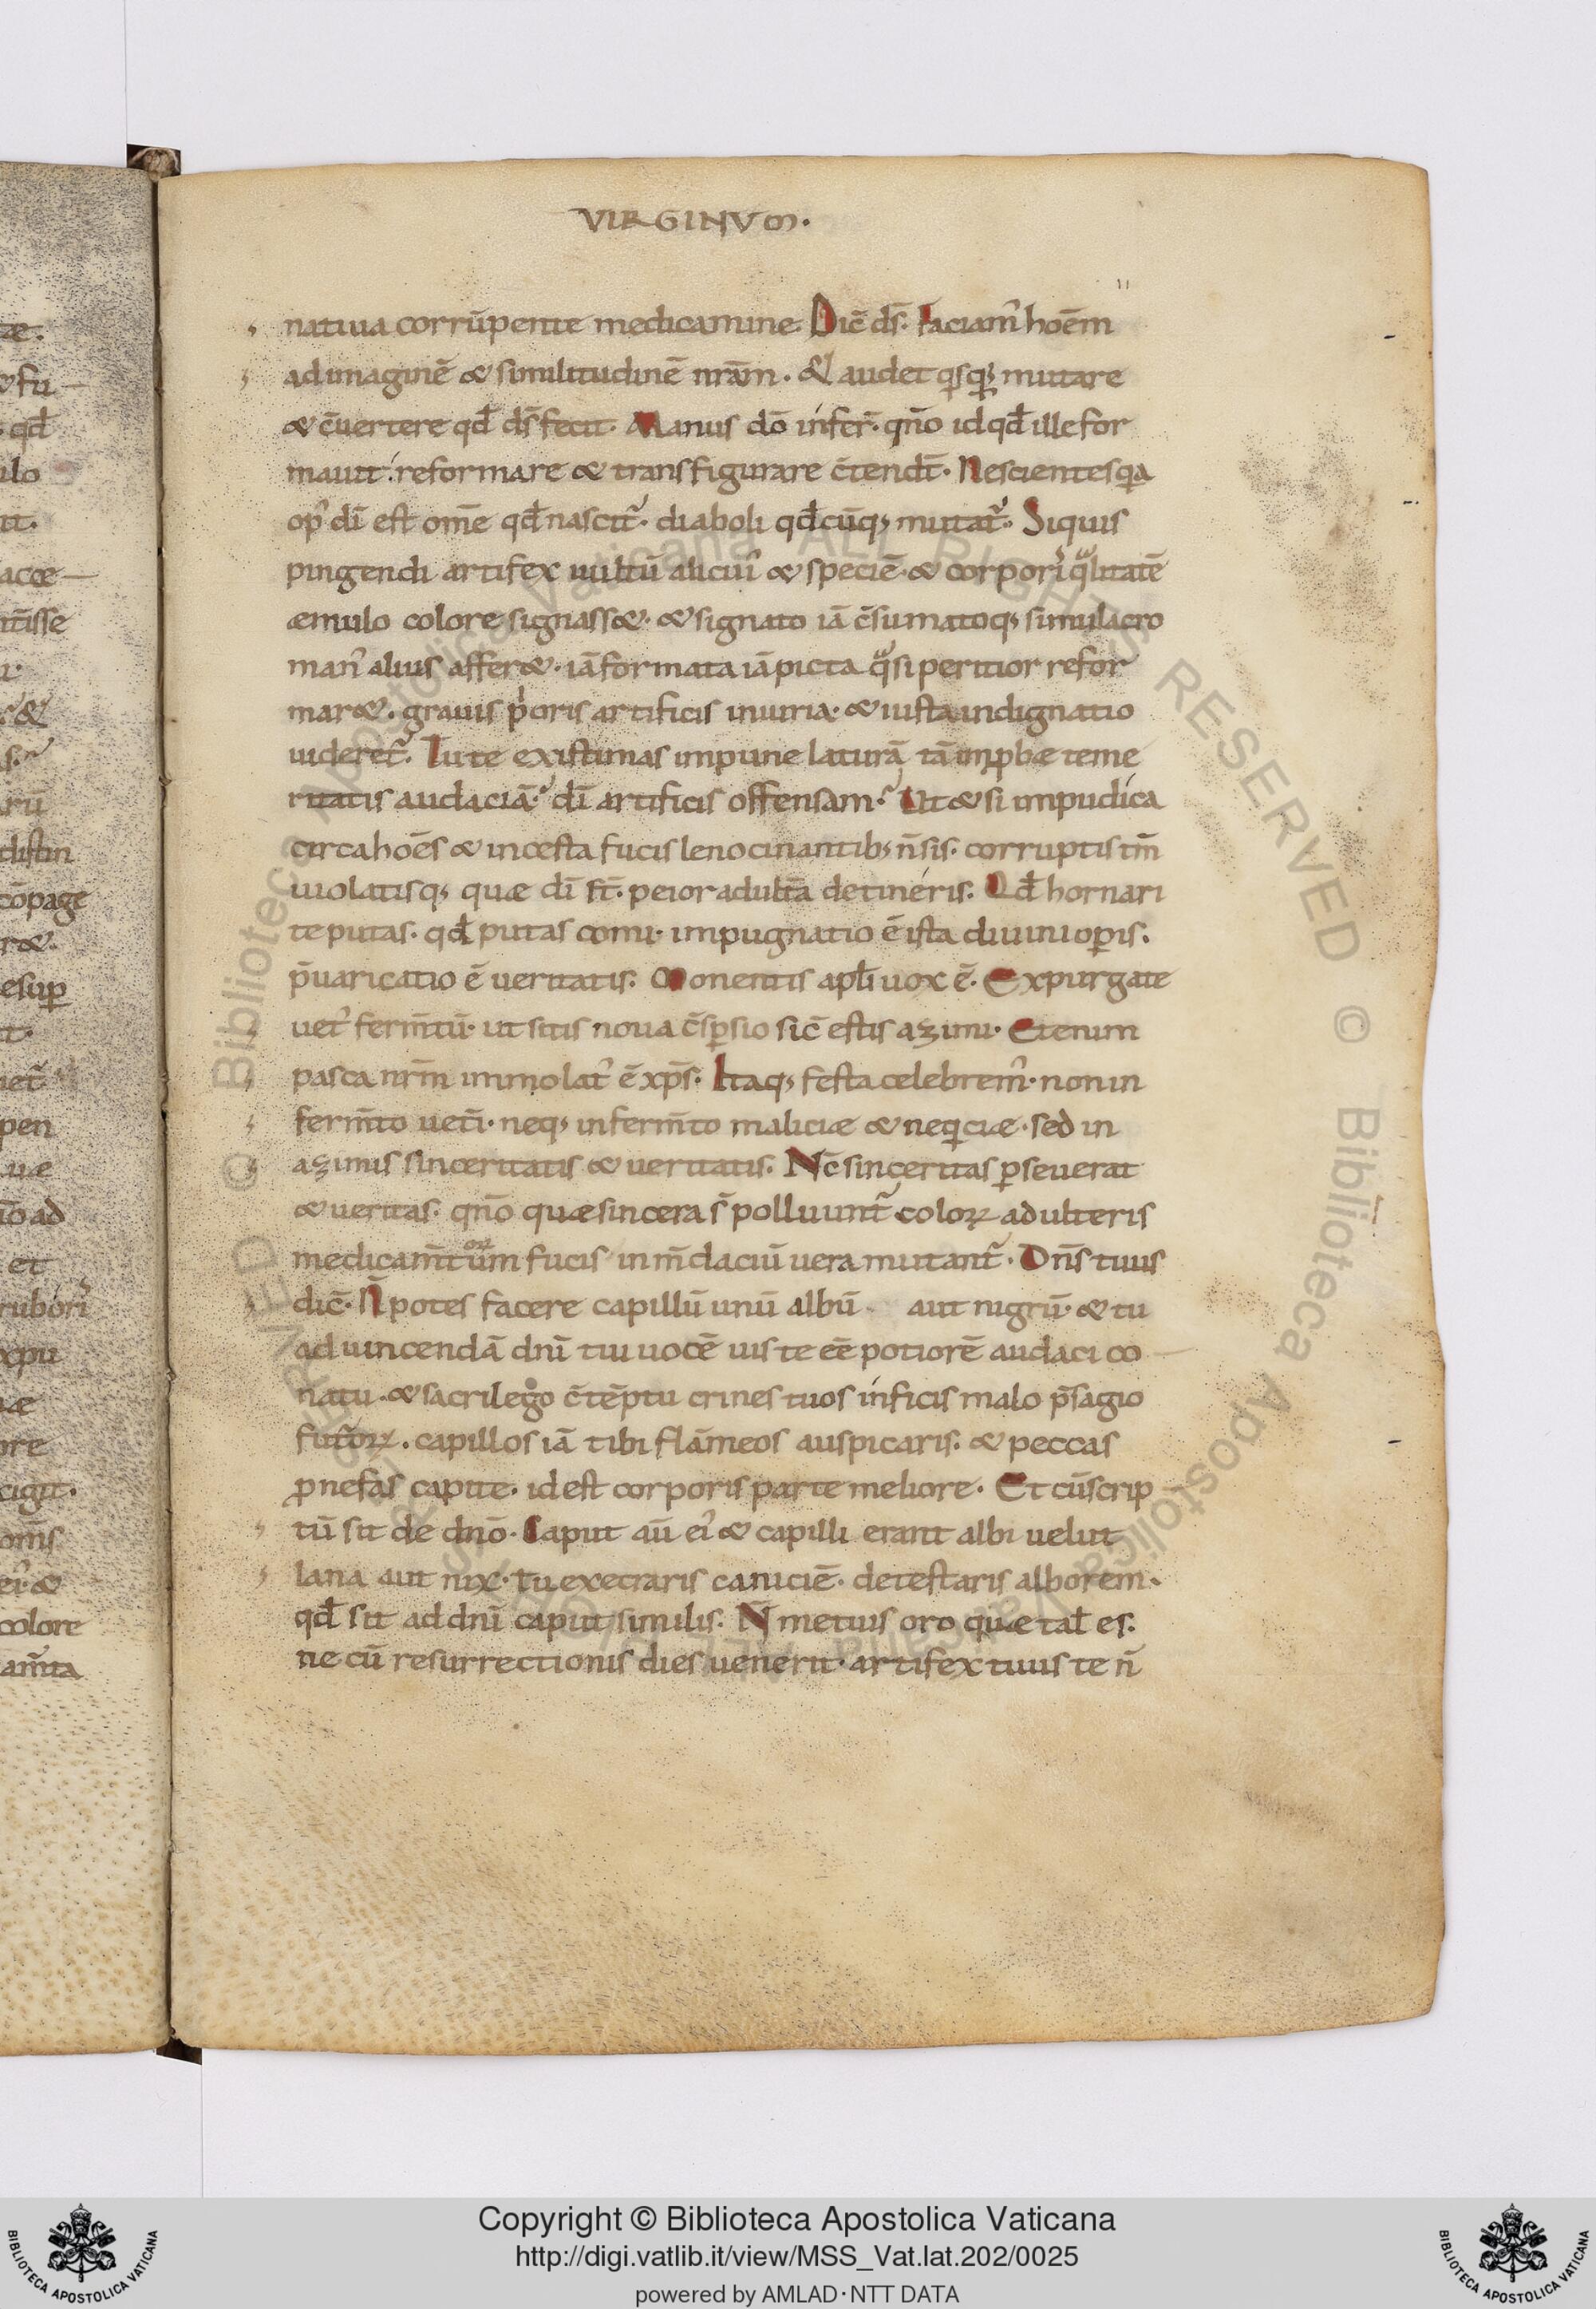 VIRGINVM.
natiua corrūpente medicamine. Dic̄ ds̄. Faciam᾽ hoēm
ad imaginē & similitudinē nrām. & audet qisqi; mutare
& c̄uertere qd̄ ds̄ fecit. Manus dō infer̄. qn̄o id qd̄ ille for
mauit. reformare & transfigurare c̄tendt̄. Nescientes qia
op᾽ dī est om̄e qd̄ nascit᾽. diaboli qd̄cūq; mutat᾽. Siquis
pingendi artifex uultū aliciui᾽ & speciē. & corpori᾽ qalitatē
æmulo colore signass&. & signato iā c̄sumatoq; simulacro
man᾽ alius affer&. iā formata iā picta qasi peritior refor
mar&. grauis p̄oris artificis iniuria. & iusta indignatio
uideret᾽. Tu te existimas impune laturā tā improbæ teme
ritatis audaciā. dī artificis offensam. Ut & si impudica
circa hoēs & incesta fucis lenocinantib; n̄ sis. corruptis tm̄
uiolatisq; quæ dī st̄. peior adult̄a detineris. Qd̄ hornari
te putas. qd̄ putas comi. impugnatio ē ista diuini opis.
p̄uaricatio ē ueritatis. Monentis apl̄i uox ē. Expurgate
uet᾽ ferm̄tū. ut sitis noua c̄spsio sic̄ estis azimi. Etenim
pasca nr̄m immolat᾽ ē xp̄s. Itaq; festa celebrem᾽. non in
ferm̄to uet̄i. neq; in ferm̄to maliciæ & neqiciæ. sed in
azimis sinceritatis & ueritatis. Nc̄ sinceritas pseuerat
& ueritas. qn̄o quæ sincera s̄ polluunt᾽ coloꝝ adulteris
medicam̄tūm fucis in m̄daciū uera mutant᾽. Dn̄s tuus
oꝝ
dic̄. N̄ potes facere capillū unū albū aut nigrū. & tu
ad uincendā dnī tui uocē uis te eē potiorē audaci co
natu. & sacrilego c̄tēptu crines tuos inficis malo p̄sagio
futōꝝ. capillos iā tibi flāmeos auspicaris. & peccas
pro nefas capite. id est corporis parte meliore. Et cū scrip
tū sit de dnō. Caput aū ei᾽ & capilli erant albi uelut
lana aut nix. tu execraris caniciē. detestaris alborem.
qd̄ sit ad dnī caput similis. N̄ metuis oro quæ tal̄ es.
ne cū resurrectionis dies uenerit. artifex tuus te n̄
Copyright © Biblioteca Apostolica Vaticana
http://digi.vatlib.it/view/MSS_Vat.lat.202/0025
powered by AMLAD·NTT DATA